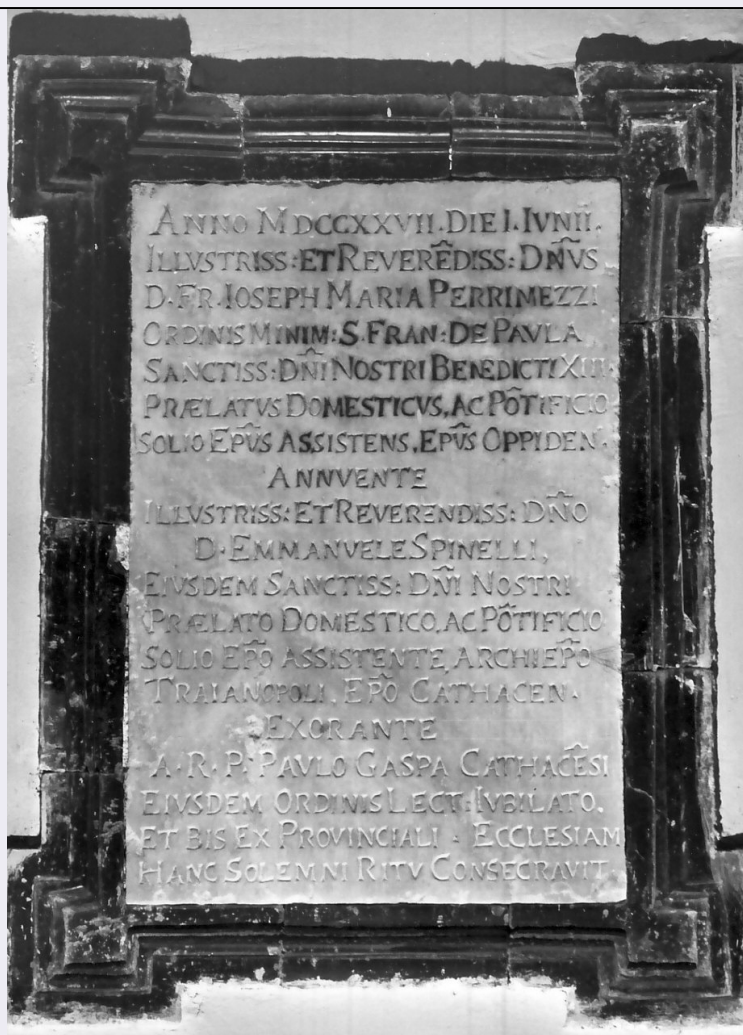 ANNO MDCCXXVII. DIE I. IVNII.
ILLVSTRISS: ET REVERÊDISS: DN̂VS
D. FR. IOSEPH MARIA PERRIMEZZI
ORDINIS MINIM: S. FRAN: DE PAVLA
SANCTISS: DN̂I NOSTRI BENEDICTI XIII.
PRÆLATVS DOMESTICVS, AC PÔTIFICIO
SOLIO EPV̂S ASSISTENS, EPV̂S OPPIDEN.
ANNVENTE
ILLVSTRISS: ET REVERENDISS: DN̂O
D. EMMANVELE SPINELLI,
EIVSDEM SANCTISS: DN̂I NOSTRI
PRÆLATO DOMESTICO, AC PÔTIFICIO
SOLIO EP̂O ASSISTENTE, ARCHIEP̂O
TRAIANOPOLI, EP̂O CATHACEN.
EXORANTE
A. R. P. PAVLO GASPA CATHACÊSI
EIVSDEM ORDINIS LECT: IVBILATO,
ET BIS EX PROVINCIALI. ECCLESIAM
HANC SOLEMNI RITV CONSECRAVIT.